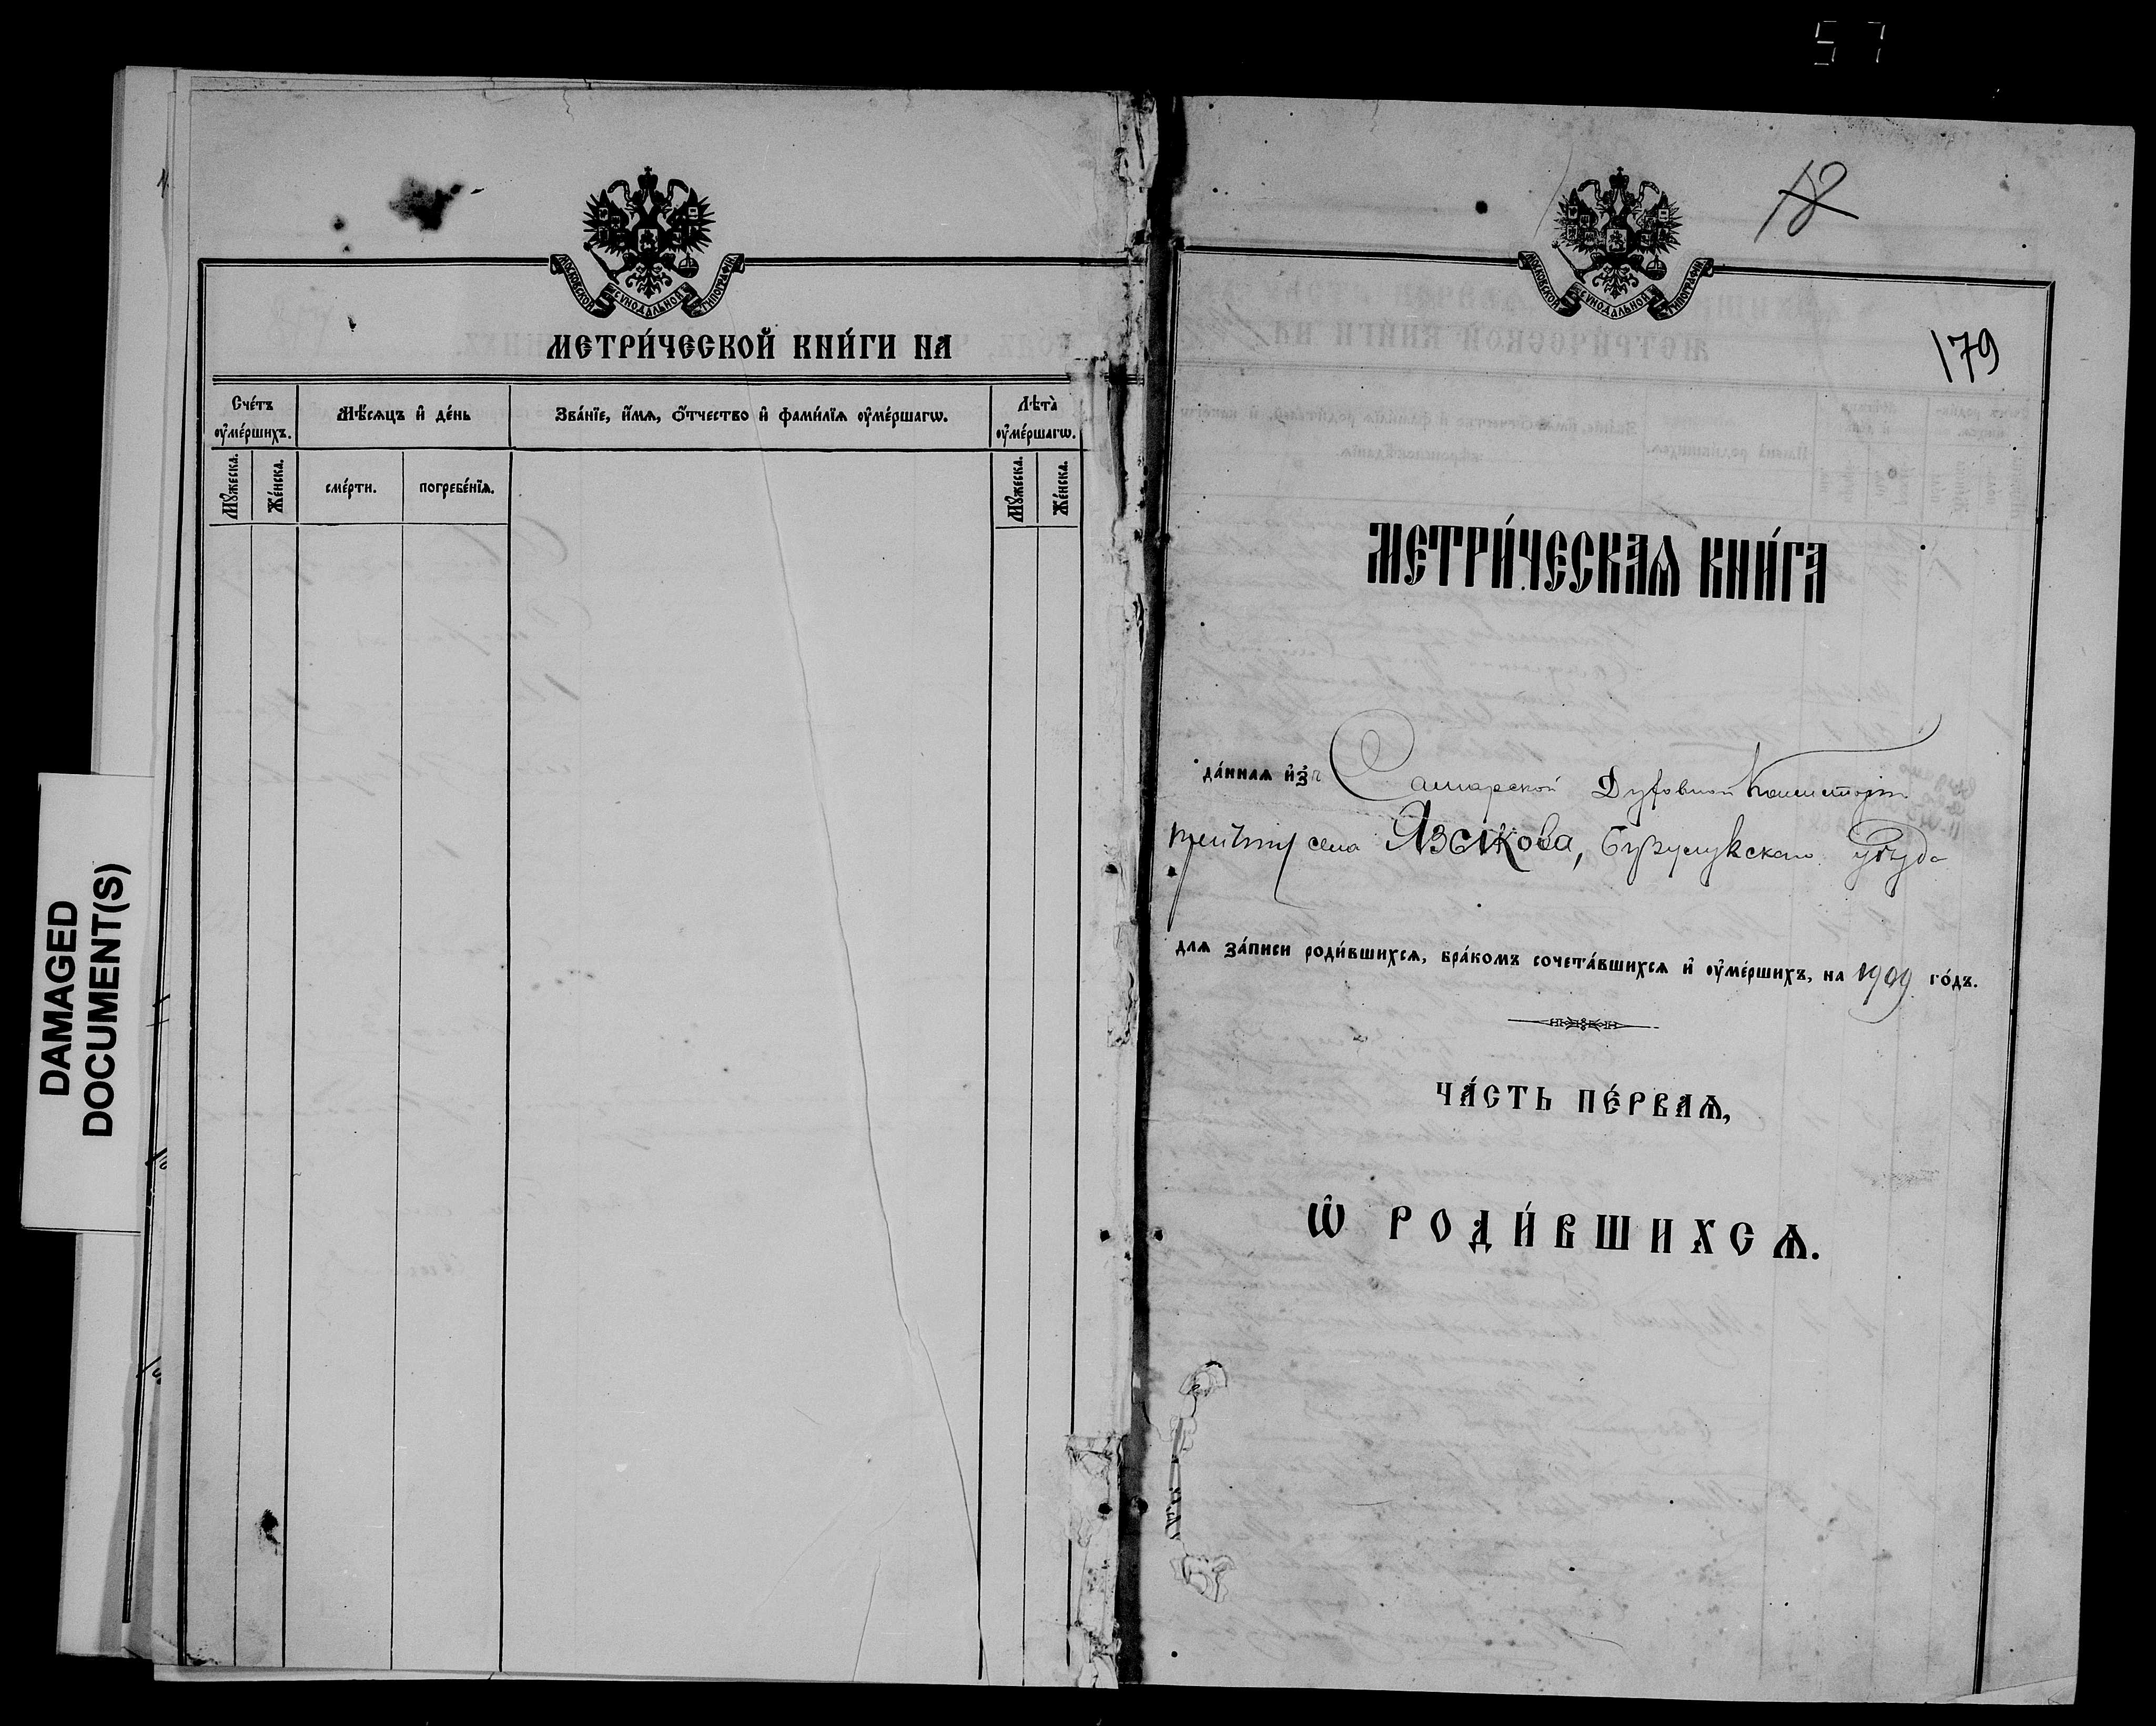 57
DAMAGED
DOCUMENT(S)
МОСКОВСКОЙ СѴНОДАЛЬНОЙ ТИПОГРАФІИ
МЕТРИ́ЧЕСКОЙ КНИ́ГИ НА
Сче́тъ
ᲂу҆ме́ршихъ.
Мѣ́сяцъ и҆ де́нь
Зва́нїе, и҆́мѧ, ѻ҆́тчество и҆ фами́лїѧ ᲂу҆ме́ршагѡ.
Лѣ́та
ᲂу҆ме́ршагѡ.
Мꙋ́жеска.
Же́нска.
сме́рти.
погребе́нїѧ.
Мꙋ́жеска.
Же́нска.
МОСКОВСКОЙ СѴНОДАЛЬНОЙ ТИПОГРАФІИ
18
179
МЕТРИ́ЧЕСКАѦ КНИ́ГА
да́ннаѧ и҆зъ Самарской Духовной Консисторіи
причту села Языкова, Бузулукскаго уѣзда
длѧ за́писи роди́вшихсѧ, бра́комъ сочета́вшихсѧ и҆ ᲂу҆ме́ршихъ, на 1909 го́дъ.
ЧА́СТЬ ПЕ́РВАѦ,
Ѽ РОДИ́ВШИХСѦ.